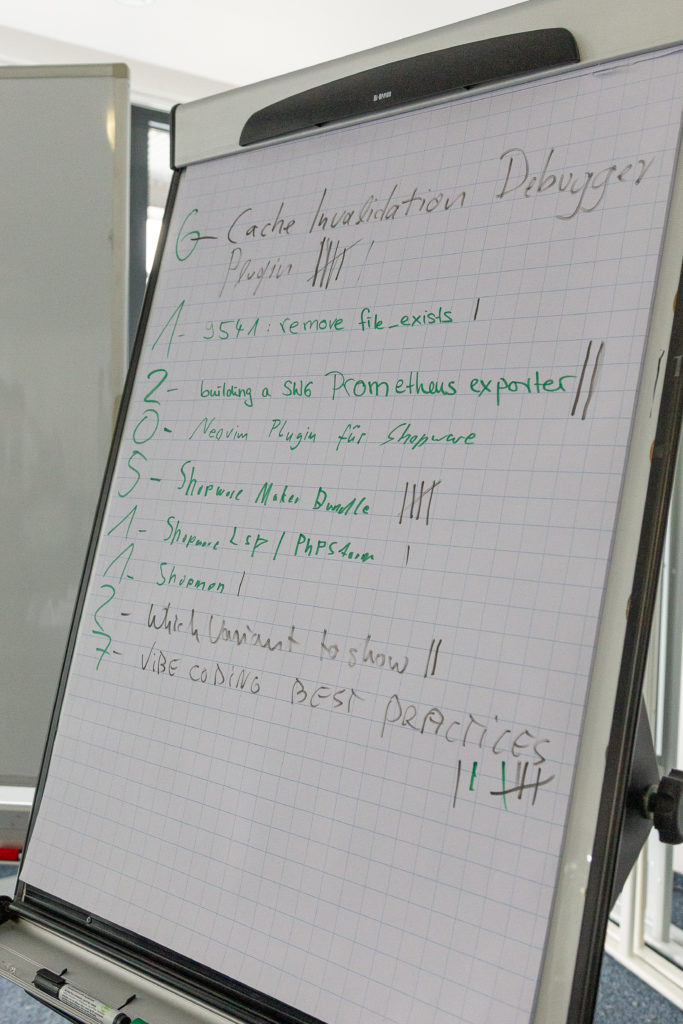 6 - Cache Invalidation Debugger
Plugin
1 - 9541: remove file_exists
2 - building a SW6 Prometheus exporter
0 - Neovim Plugin für Shopware
5 - Shopware Maker Bundle
1 - Shopware LSP / PHPStorm
1 - Shopmon
2 - Which Variant to show
7 - ViBE CODiNG BEST PRACTiCES